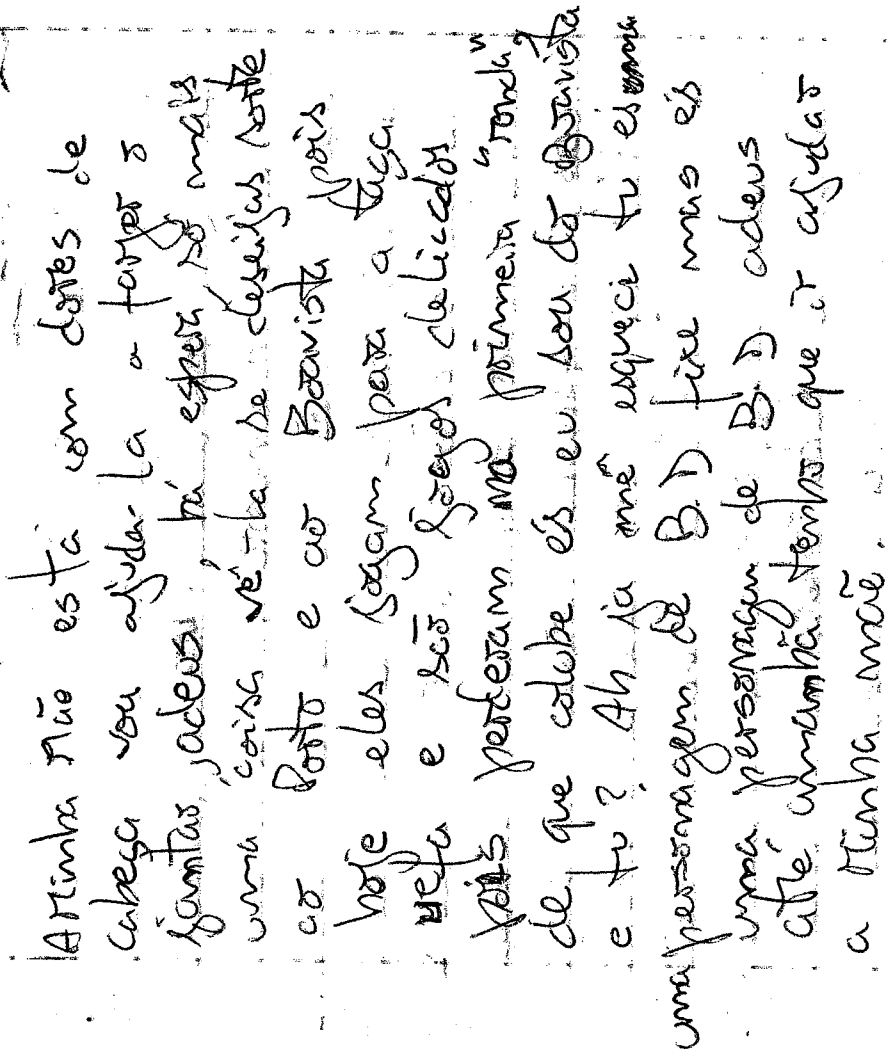 A Minha Mãe esta com dores de
Cabeça vou ajuda-la a fazer o
jantar, adeus, há espera só mais
uma coisa vê-la se deseijas sorte
ao Porto e ao Boavista pois
hoje eles jogam para a taça
uefa e são jogos delicados
pois perderam na primeira "ronda"
de que colube és eu sou do Boavista
e tu? Ah ja me esqueci tu es uma
uma personagem de B.D fixe mas és
uma personagem de B.D adeus
até amanhã tenho que ir ajudar
a Minha mãe.